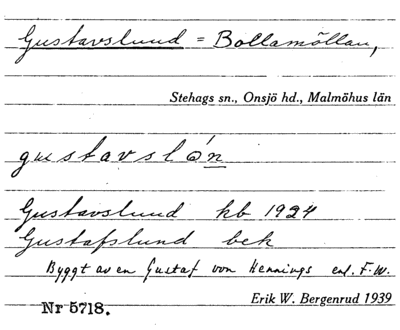 Gustavslund = Bollamöllan,
Stehags sn., Onsjö hd., Malmöhus län
gustavslón
Gustavslund kb 1924
Gustafslund bek
Byggt av en Gustaf von Hennings enl. F.W.
Nr 5718.
Erik W. Bergenrud 1939